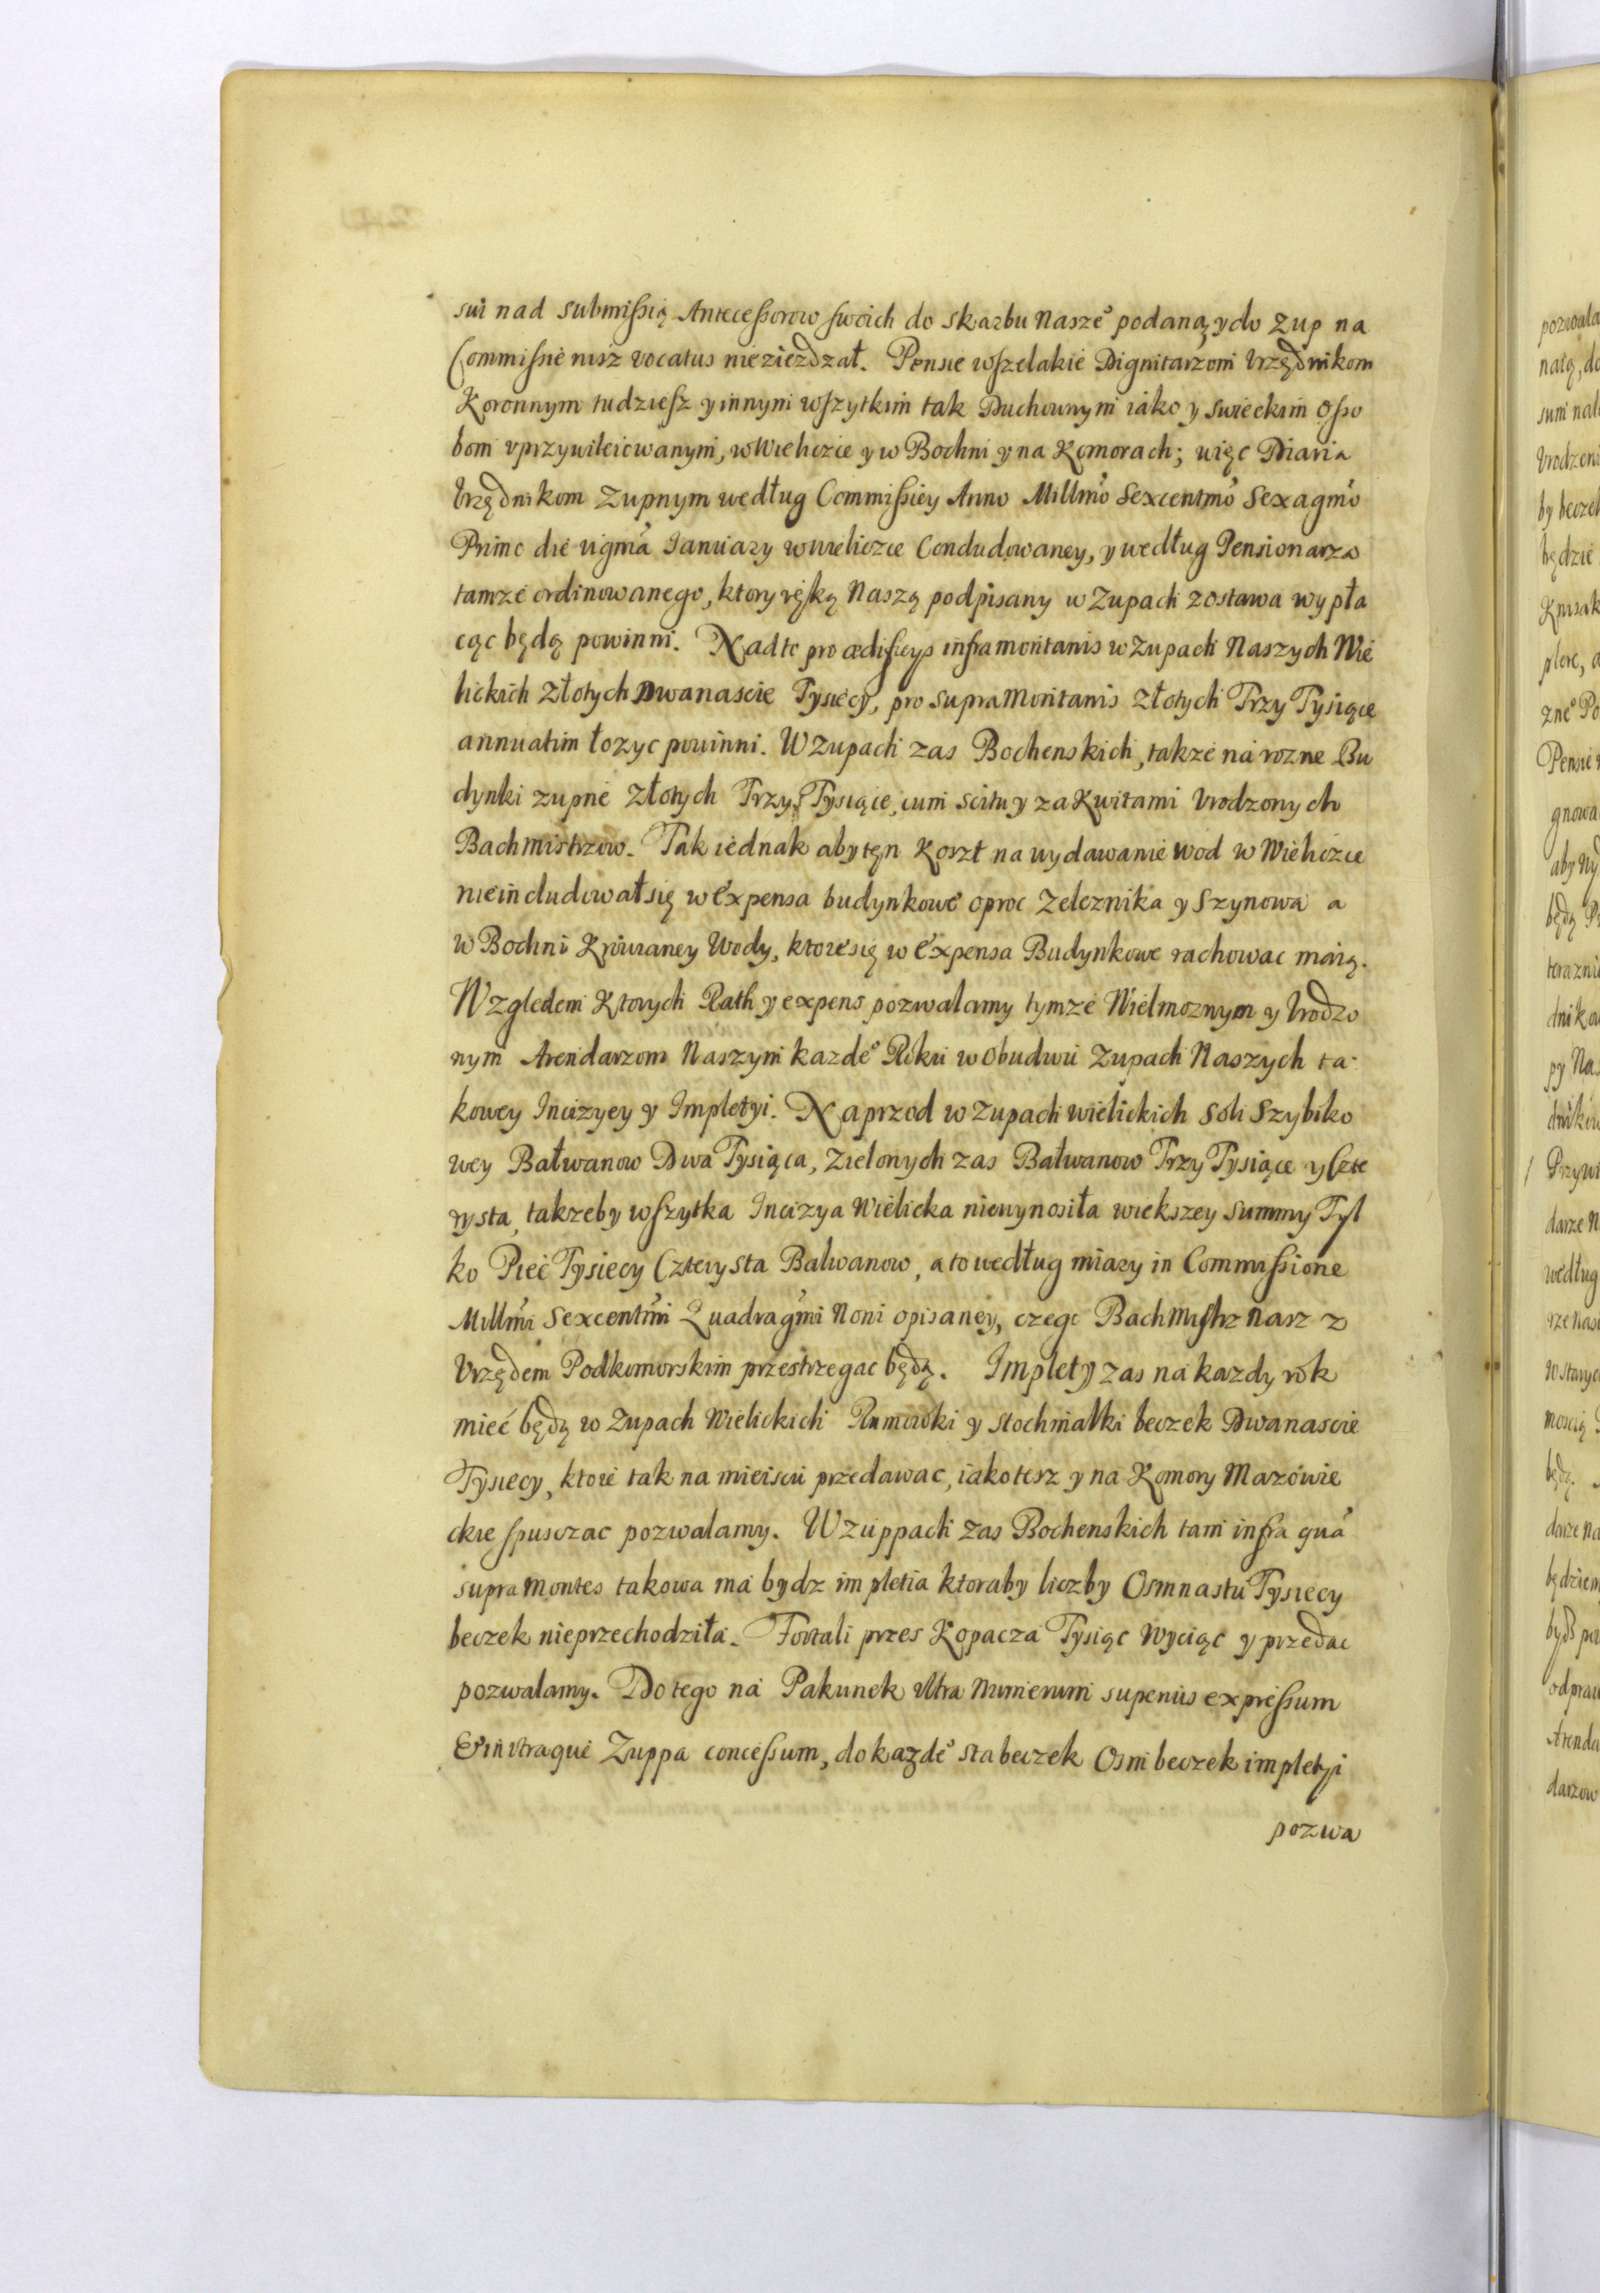 sui nad submissią Antecessorow swoich do skarbu Nasze° podaną, y do Zup na
Commissie nisz vocatus nieziezdzał. Pensie wszelakie Dignitarzom Vrzędnikom
Koronnym tudziesz y innym wszytkim tak Duchownym iako y swieckim Oso
bom vprzywileiowanym, w Wieliczce y w Bochni y na Komorach; więc Diaria
Vrzędnikom Zupnym według Commissiey Anno Millmo Sexcentmo Sexagmo
Primo die vigma Ianuary w Wieliczce Concludowaney, y według Pensionarza
tamze ordinowanego, ktory ręką Naszą podpisany w Zupach zostawa wypła
cąc będą powinni. Nadto pro ædificys inframontanis w Zupach Naszych Wie
lickich Złotych Dwanascie Tysiecy, pro supramontanis Złotych Trzy Tysiące
annuatim łozyc powinni. W Zupach zas Bochenskich, takze na rozne Bu
dynki zupne Złotych Trzy Tysiące, cum scitu y za Kwitami Vrodzonych
Bachmistrzow. Tak iednak aby ten Koszt na wydawanie wod w Wieliczce
nieincludował się w Expensa budynkowe oproc Zeleznika y Szynowa a
w Bochni Krowianey Wody, ktore się w Expensa Budynkowe rachowac maią.
Względem Ktorych Rath y expens pozwalamy tymze Wielmoznym y Vrodzo
nym Arendarzom Naszym kazde° Roku w obudwu Zupach Naszych ta
kowey Incizyey y Impletyi. Naprzod w Zupach wielickich Soli Szybiko
wey Bałwanow Dwa Tysiąca, Zielonych zas Bałwanow Trzy Tysiące y Czte
rysta, takzeby wszytka Incizya Wielicka niewynosiła wiekszey summy Tyl
ko Piec Tysiecy Czterysta Balwanow, a to według miary in Commissione
Millmi Sexcentmi Quadragmi Noni opisaney, czego Bachmistrz Nasz z
Vrzędem Podkomorskim przestrzegac będą. Implety zas na kazdy rok
mieć będą w Zupach Wielickich Rumowki y stochmalki beczek Dwanascie
Tysiecy, ktore tak na mieiscu przedawac, iako tesz y na Komory Mazowie
ckie spusczac pozwalamy. W Zuppach zas Bochenskich tam infra qua
supra Montes takowa ma bydz impletia ktoraby liczby Osmnastu Tysiecy
beczek nieprzechodziła. Fortali przes Kopacza Tysiąc Wyciąc y przedac
pozwalamy. Do tego na Pakunek Ultra Numerum superius expressum
& in vtraque Zuppa concessum, do kazde° sta beczek Osm beczek impletyi
pozwa